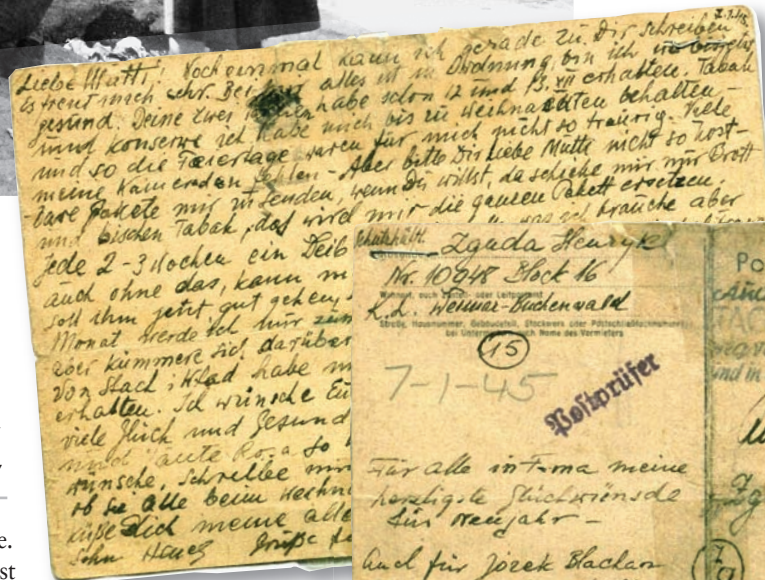 7.1.45
Liebe Mutti! Noch einmal kann ich gerade zu Dir schreiben
es freut mich sehr. Bei mir alles ist in Ordnung, bin ich
gesund. Deine zwei habe schon 12 und 13. XII erhalten. Tabak
und Konserwe ich habe mich bis zu Weihnachten behalten -
und so die Feiertage, waren für mich nicht so traurig. Viele
meine Kameraden fehlen - Aber bitte Dir liebe Mutti nicht so kost-
bare Pakete mir zu senden, wenn Du willst, da schicke mir nur Brott
und bischen Tabak, das wird mir die ganzen Pakett ersetzen.
Jede 2-3 Wochen ein Leib was ich brauche aber
auch ohne das, kann
soll ihm jetzt gut gehen,
Monat werde ich nur
aber kümmere sich darüber
von Stach i Wład habe
erhalten. Ich wünsche
viele Glück und Gesund
und
wünsche, schreibe
ob sie alle beim Weihna
küße Dich meine alle
Sohn Grüße
Schutzhäftl. Zguda Henryk
Nr. 10948 Block 16
Wohnort, auch Zustell- oder Leitpostamt
K.L. Weimar-Buchenwald
Straße, Hausnummer, Gebäudeteil, Stockwerk oder Postschließfachnummer;
bei Untermietern auch Name des Vermieters
G5
7-1-45
Postprüfer
Für alle in Firma meine
herzligste Glückwünsche
für Neujahr -
Auch für Józek Blachan
Po
Zg
e.
st